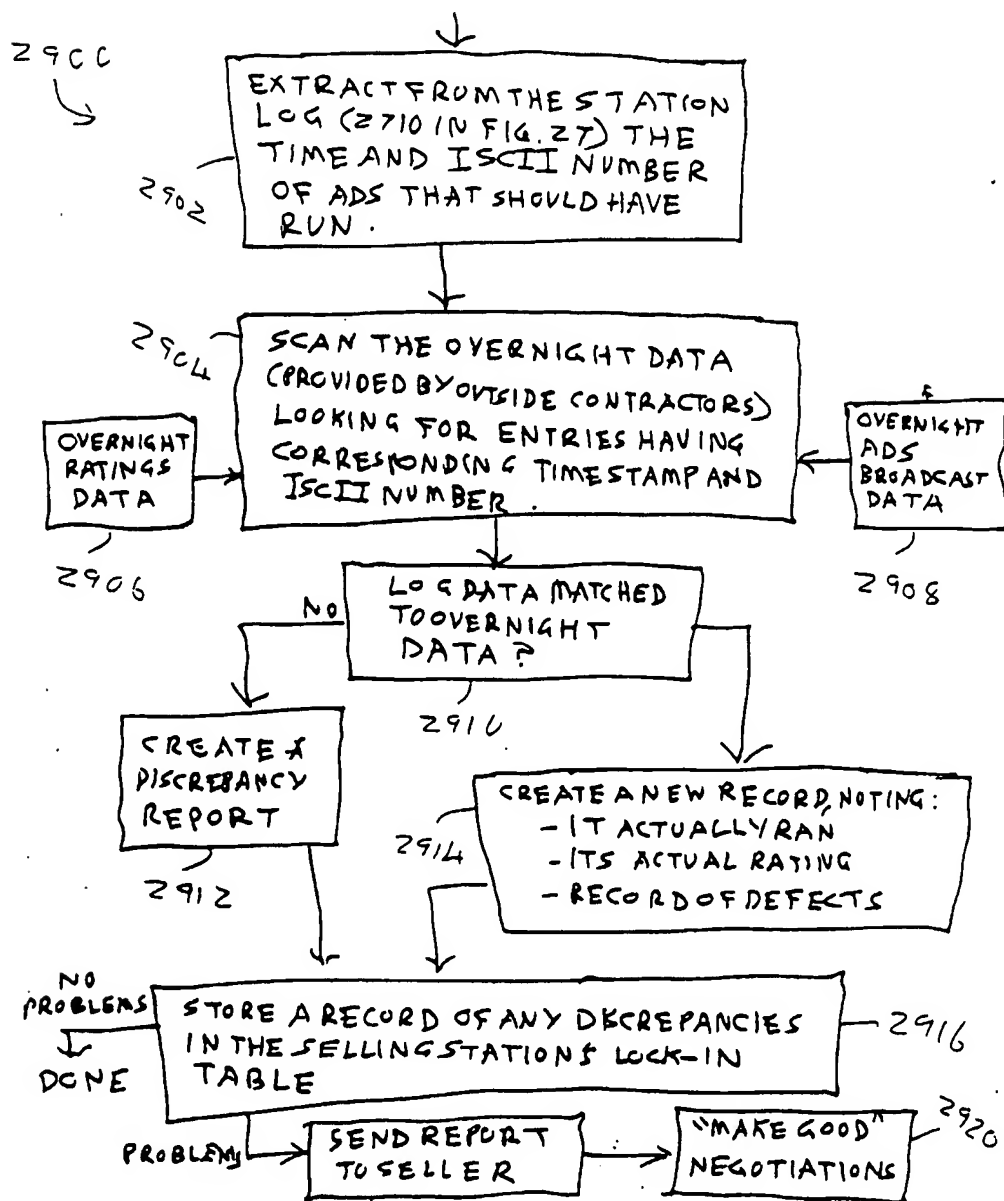 29CC
EXTRACT FROM THE STATION
LOG (2710 IN FIG. 27) THE
TIME AND ISCII NUMBER
OF ADS THAT SHOULD HAVE
RUN.
2902
2904
SCAN THE OVERNIGHT DATA
(PROVIDED BY OUTSIDE CONTRACTORS)
LOOKING FOR ENTRIES HAVING
CORRESPONDING TIMESTAMP AND
ISCII NUMBER.
OVERNIGHT
RATINGS
DATA
2906
OVERNIGHT
ADS
BROADCAST
DATA
2908
LOG DATA MATCHED
TO OVERNIGHT
DATA?
NO
2910
CREATE A
DISCREPANCY
REPORT
2912
CREATE A NEW RECORD, NOTING:
- IT ACTUALLY RAN
- ITS ACTUAL RATING
- RECORD OF DEFECTS
2914
NO
PROBLEMS
DONE
STORE A RECORD OF ANY DISCREPANCIES
IN THE SELLING STATIONS LOCK-IN
TABLE
2916
PROBLEMS
SEND REPORT
TO SELLER
"MAKE GOOD"
NEGOTIATIONS
2920